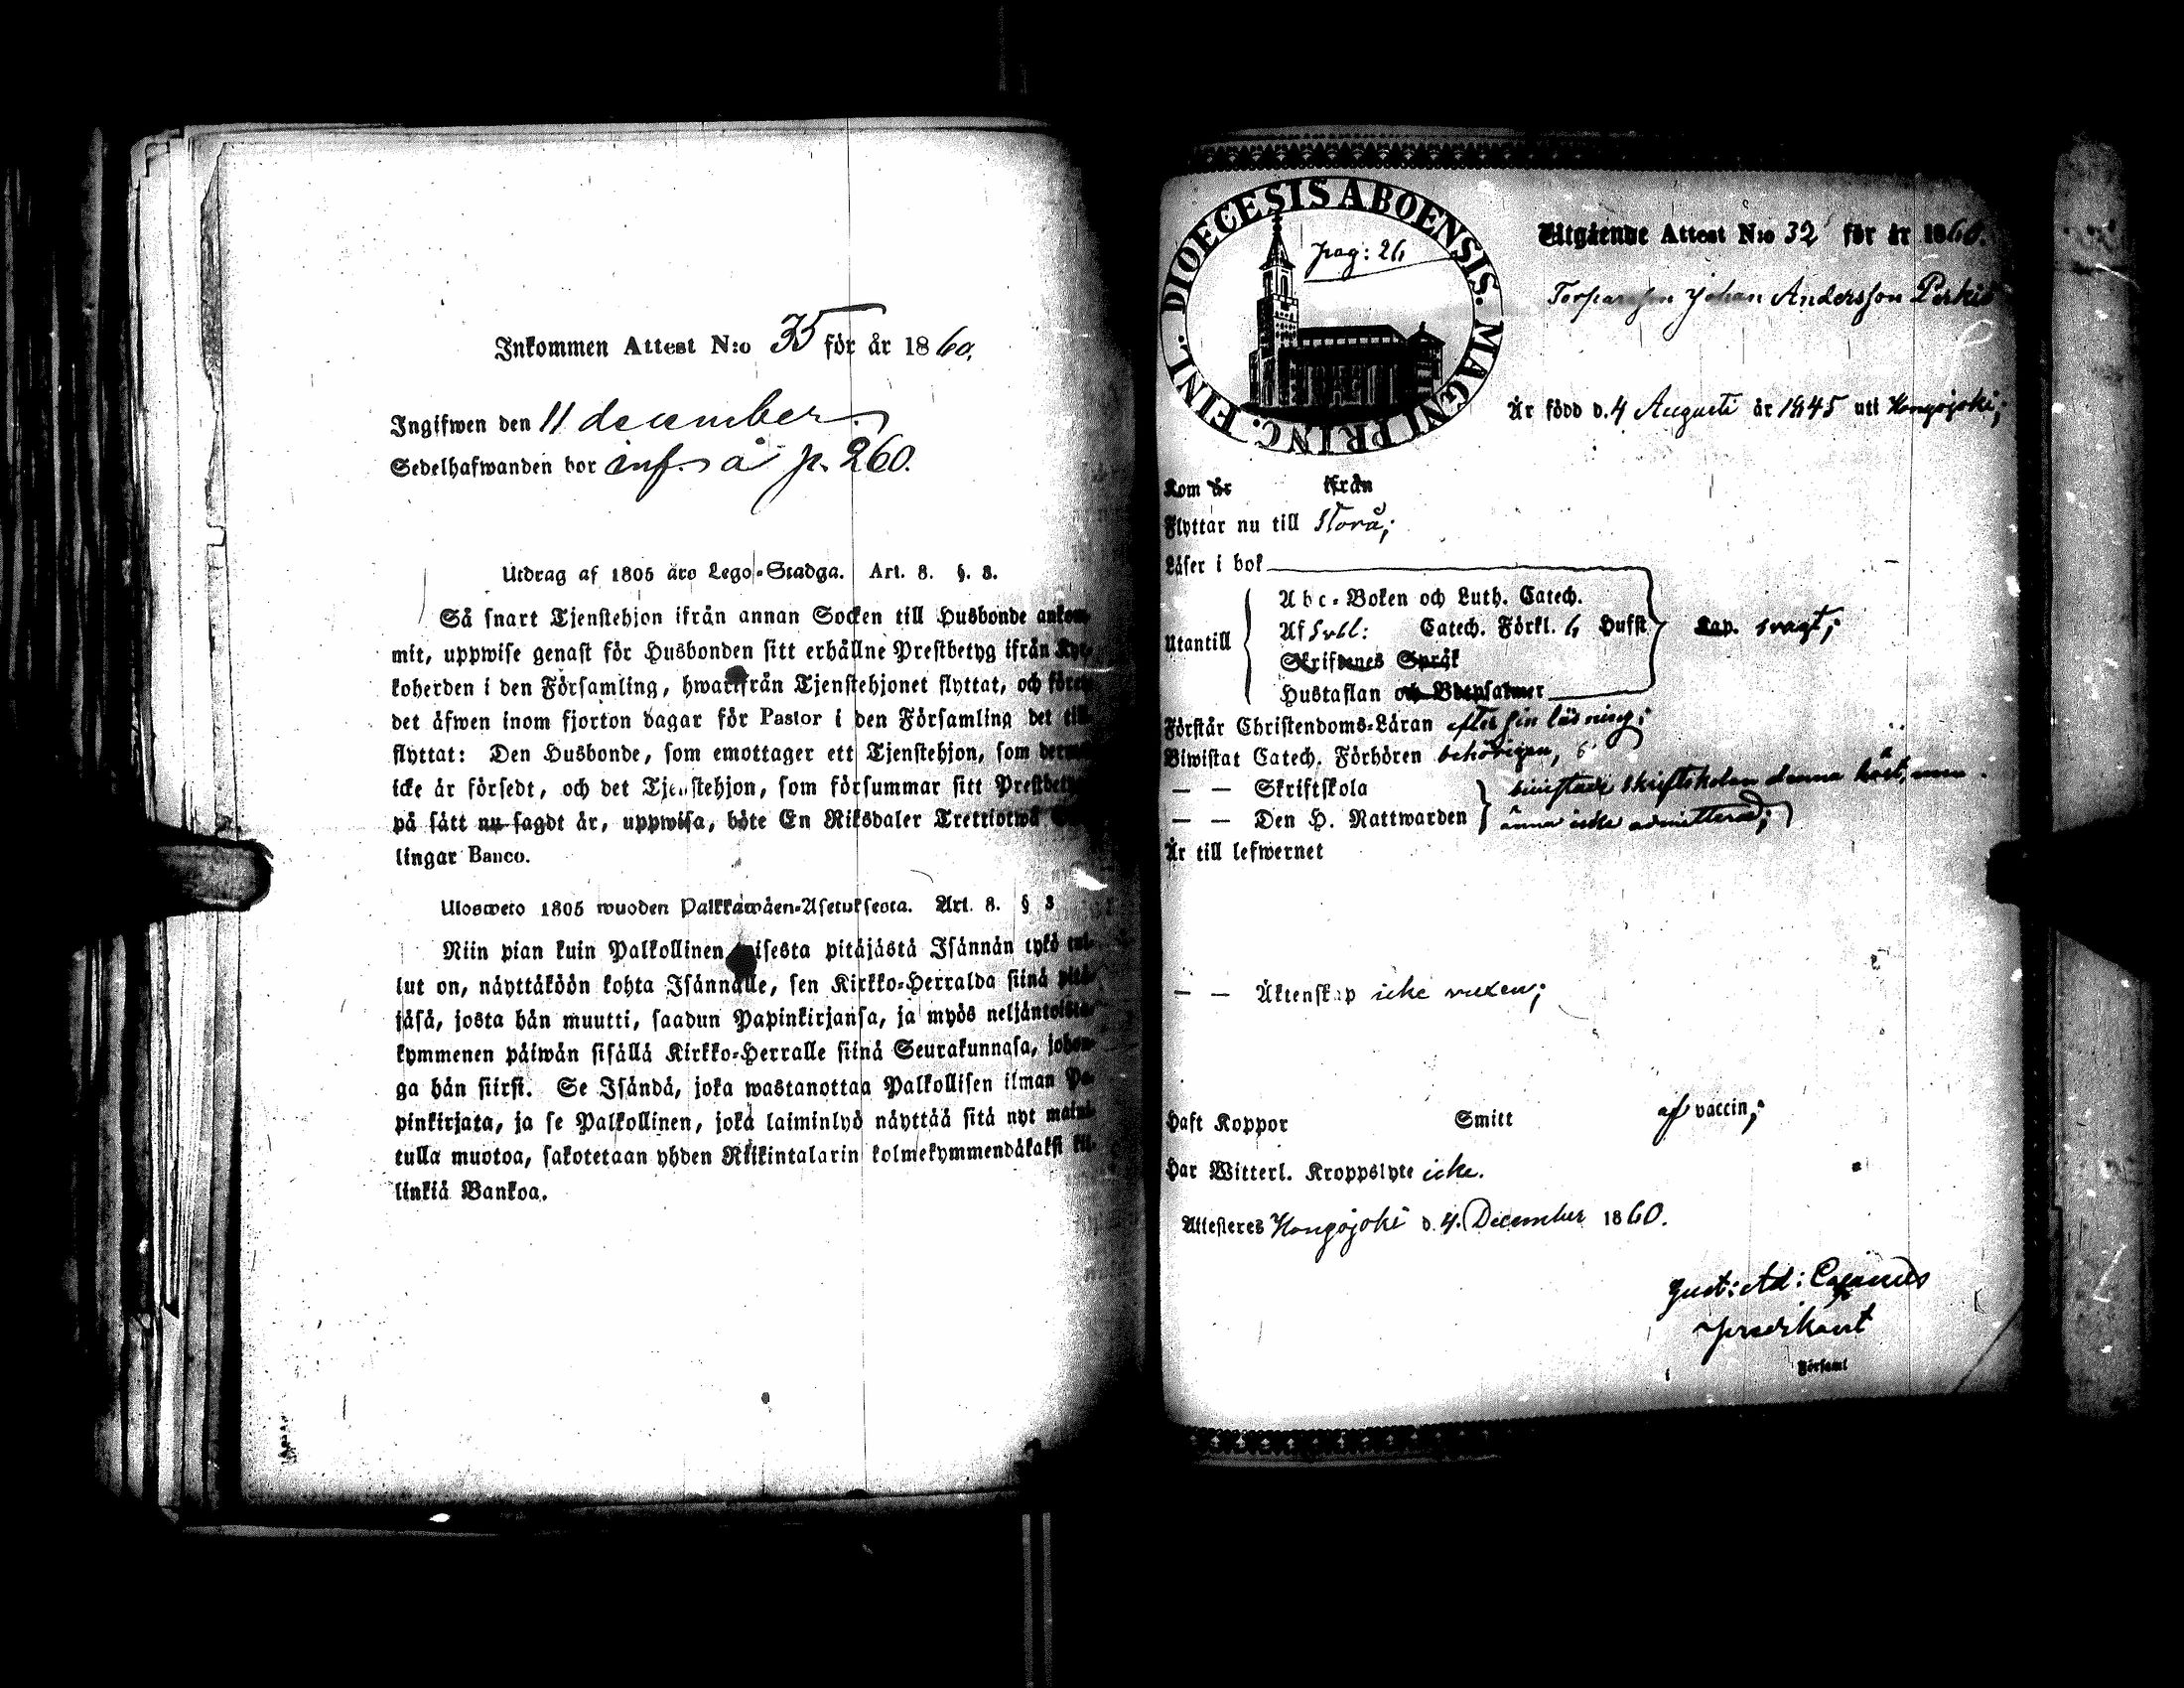 Inkommen Attest N:o 35 för år 1860.
Ingifwen den 11 december
Sedelhafwanden bor inf. å p. 260.
Utdrag af 1805 års Lego-Stadga. Art. 8. §. 3.
Så snart Tjenstehjon ifrån annan Socken till Husbonde ankom-
mit, uppwise genast för Husbonden sitt erhållne Prestbetyg ifrån Kyr-
koherden i den Församling, hwarifrån Tjenstehjonet flyttat, och före
det äfwen inom fjorton dagar för Pastor i den Församling det till
flyttat: Den Husbonde, som emottager ett Tjenstehjon, som dermed
icke är försedt, och det Tjenstehjon, som försummar sitt Prestbetyg
på sätt nu sagdt är, uppwisa, böte En Riksdaler Trettiotwå
lingar Banco.
Ulosweto 1805 wuoden Palkkawäen-Asetuksesta. Art. 8. § 3
Niin pian kuin Palkollinen toisesta pitäjästä Isännän tykö tul-
lut on, näyttäköön kohta Isännälle, sen Kirkko-Herralda siinä pitä-
jäsä, josta hän muutti, saadun Papinkirjansa, ja myös neljäntoista-
kymmenen päiwän sisällä Kirkko-Herralle siinä Seurakunnasa, johon-
ga hän siirsi. Se Isändä, joka wastanottaa Palkollisen ilman Pa-
pinkirjata, ja se Palkollinen, joka laiminlyö näyttää sitä nyt maini-
tulla muotoa, sakotetaan yhden Riikintalarin kolmekymmendäkaksi kil-
linkiä Bankoa.
DIOECESIS ABOENSIS. MAGNI PRINC. FINL.
pag: 26
Utgående Attest N:o 32 för år 1860.
Torparesson Johan Andersson
Är född d. 4 Augusti år 1845 uti Hongojoki;
Kom år ifrån
Flyttar nu till Storå;
Läser i bok
Utantill
Abc-Boken och Luth. Catech.
Af Catech. Förkl. 6 Hufst Kap. svagt;
Skriftenes Språk
Hustaflan och Botpsalmer
Förstår Christendoms-Läran efter sin läsning;
Biwistat Catech. Förhören behörigen,
— — Skriftskola biwistade skriftskolan denna höst, men
— — Den H. Nattwarden ännu icke admitterad;
Är till lefwernet
— — Äktenskap icke vuxen;
Haft Koppor Smitt af vaccin;
Har Witterl. Kroppslyte icke.
Attesteras Hongojoki d. 4. December 1860.
Gust: Ad: Cajanus
predikant
Församl